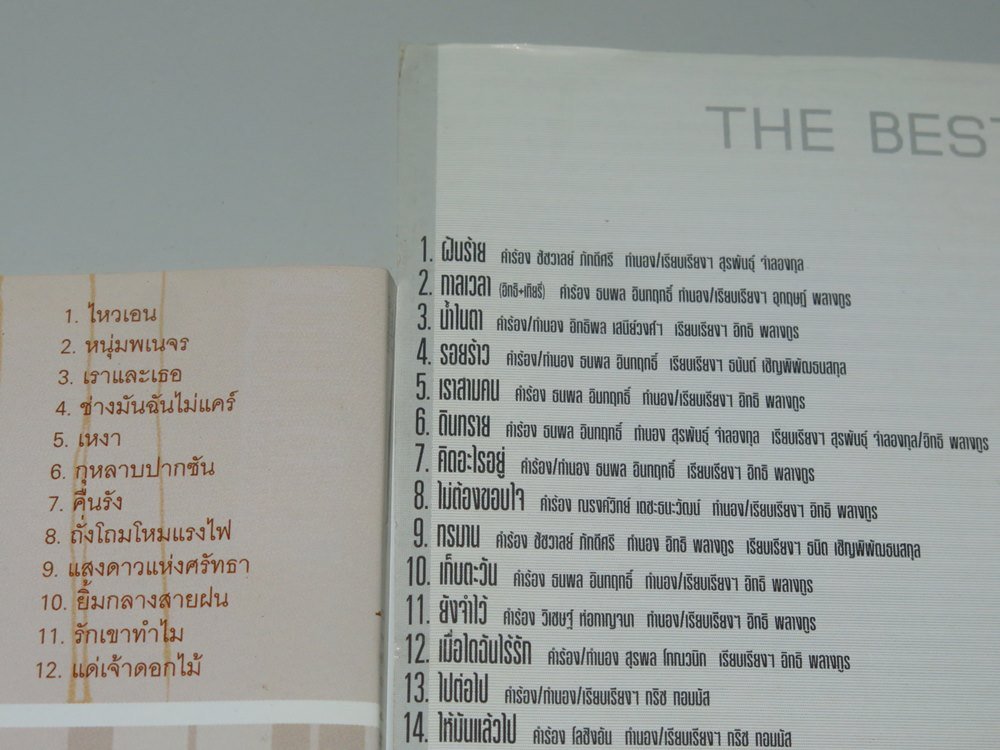 1. ไหวเอน
2. หนุ่มพเนจร
3. เราและเธอ
4. ช่างมันฉันไม่แคร์
5. เหงา
6. กุหลาบปากซัน
7. คืนรัง
8. ถั่งโถมโหมแรงไฟ
9. แสงดาวแห่งศรัทธา
10. ยิ้มกลางสายฝน
11. รักเขาทำไม
12. แด่เจ้าดอกไม้
THE BEST
1. ฝันร้าย คำร้อง ชัชวาลย์ ภักดีศรี ทำนอง/เรียบเรียงฯ สุรพันธุ์ จำลองกุล
2. กาลเวลา (อิทธิ+เกียรี่) คำร้อง ธนพล อินทฤทธิ์ ทำนอง/เรียบเรียงฯ อุกฤษฎ์ พลางกูร
3. น้ำในตา คำร้อง/ทำนอง อิทธิพล เสนีย์วงศ์ฯ เรียบเรียงฯ อิทธิ พลางกูร
4. รอยร้าว คำร้อง/ทำนอง ธนพล อินทฤทธิ์ เรียบเรียงฯ ธนันต์ เชิญพิพัฒธนสกุล
5. เราสามคน คำร้อง ธนพล อินทฤทธิ์ ทำนอง/เรียบเรียงฯ อิทธิ พลางกูร
6. ดินทราย คำร้อง ธนพล อินทฤทธิ์ ทำนอง สุรพันธุ์ จำลองกุล เรียบเรียงฯ สุรพันธุ์ จำลองกุล/อิทธิ พลางกูร
7. คิดอะไรอยู่ คำร้อง/ทำนอง ธนพล อินทฤทธิ์ เรียบเรียงฯ อิทธิ พลางกูร
8. ไม่ต้องขอบใจ คำร้อง ณรงค์วิทย์ เตชะธนะวัฒน์ ทำนอง/เรียบเรียงฯ อิทธิ พลางกูร
9. ทรมาน คำร้อง ชัชวาลย์ ภักดีศรี ทำนอง อิทธิ พลางกูร เรียบเรียงฯ ธนิต เชิญพิพัฒธนสกุล
10. เก็บตะวัน คำร้อง ธนพล อินทฤทธิ์ ทำนอง/เรียบเรียงฯ อิทธิ พลางกูร
11. ยังจำไว้ คำร้อง วิเชษฐ์ ห่อกาญจนา ทำนอง/เรียบเรียงฯ อิทธิ พลางกูร
12. เมื่อใดฉันไร้รัก คำร้อง/ทำนอง สุรพล โทณวนิก เรียบเรียงฯ อิทธิ พลางกูร
13. ไปต่อไป คำร้อง/ทำนอง/เรียบเรียงฯ กริช ทอมมัส
14. ให้มันแล้วไป คำร้อง โลชิงอัน ทำนอง/เรียบเรียงฯ กริช ทอมมัส